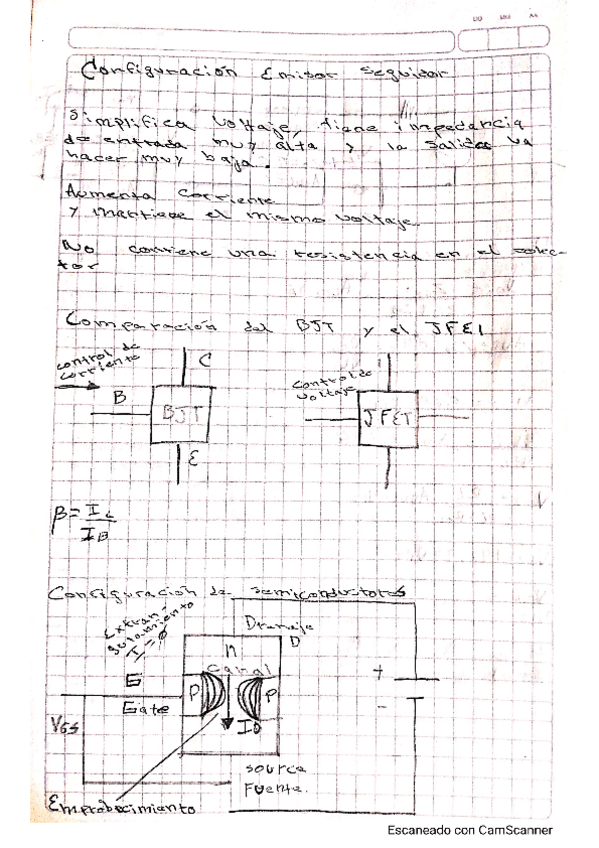 Configuración Emisor Seguidor
Simplifica voltaje, tiene impedancia
de entrada muy alta y la salida va
hacer muy baja.
Aumenta corriente
y mantiene el mismo voltaje
No contiene una resistencia en el colec-
tor
Comparación del BJT y el JFET
control de
corriente
C
B
BJT
E
Control de
voltaje
JFET
β = Ic
IB
Configuración de semiconductores
Drenaje
D
n
canal
G
Gate
P
P
ID
VGS
source
Fuente.
+
-
Emprobecimiento
Escaneado con CamScanner